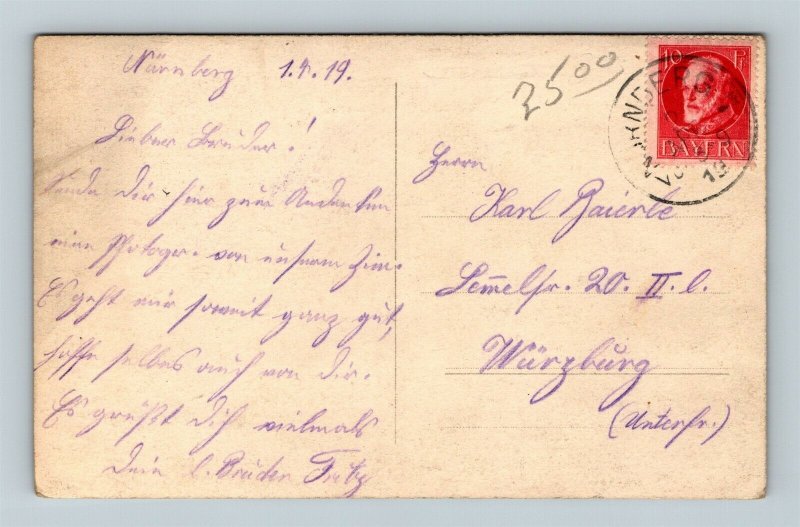 Nürnberg 1.4.19.
Lieber Bruder!
Sende Dir hier zum Andenken
eine Photogr. von unserm Zim.
Es geht mir soweit ganz gut,
hoffe selbes auch von Dir.
Es grüßt Dich vielmals
Dein l. Bruder Fritz
2500
10 Pf
BAYERN
NÜRNBERG
19
Herrn
Karl Baierle
Semmelstr. 20. II. l.
Würzburg
(Unterfr.)